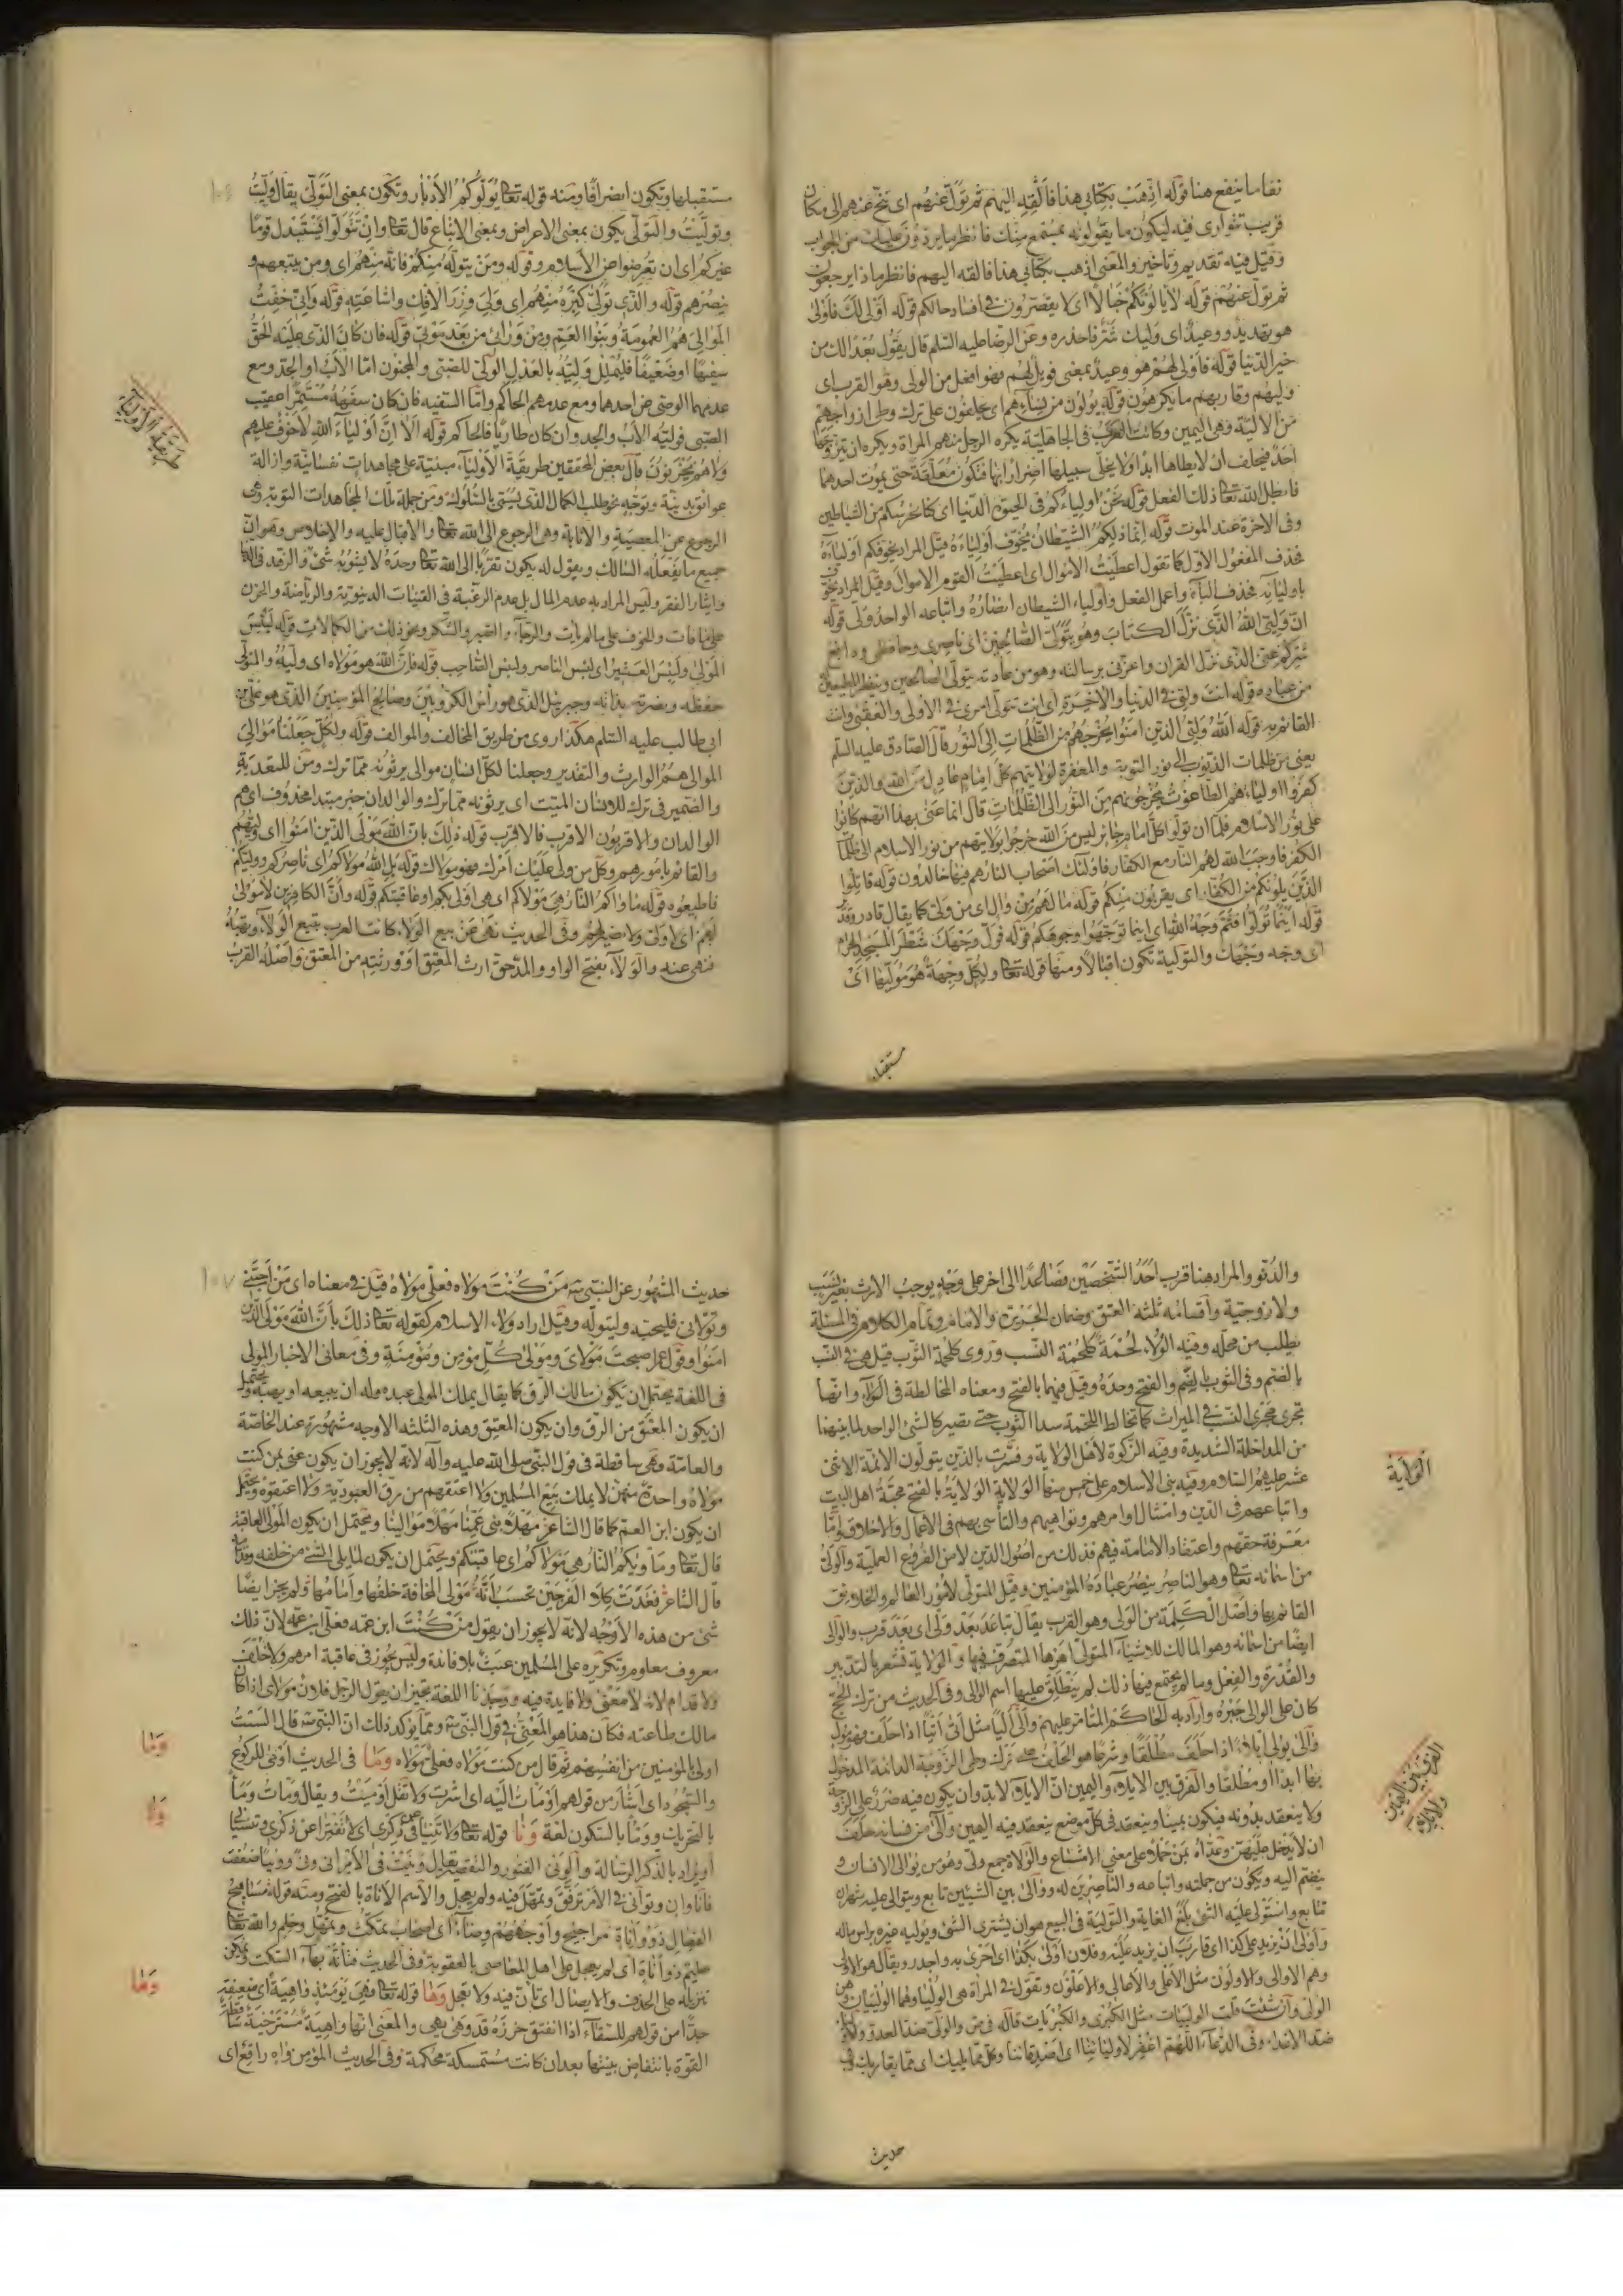 نفاما ينفع هنا قوله اذهب بكتابي هذا فالقه اليهم ثم تول عنهم اى تنح عنهم الى مكان
قريب تتوارى فيه ليكون ما يقولونه بمستمع منك فانظر ما يردون عليك من الجواب
وقيل فيه تقديم وتاخير والمعنى اذهب بكتابي هذا فالقه اليهم فانظر ماذا يرجعون
ثم تول عنهم قوله لا يالونكم خبالا اى لا يقصرون فى افساد حالكم قوله اولى لك فاولى
هو تهديد ووعيد اى وليك شر فاحذره وعن الرضا عليه السلم قال يقول بعدا لك من
خير الدنيا قوله فاولى لهم هو وعيد بمعنى فويل لهم فهو افعل من الولى وهو القرب اى
وليهم وقاربهم ما يكرهون قوله يؤلون من نسائهم اى يحلفون على ترك وطى ازواجهم
من الالية وهى اليمين وكانت العرب فى الجاهلية يكره الرجل منهم المراة ويكره ان يتزوجها
احد فيحلف ان لا يطاها ابدا ولا يخلى سبيلها اضرارا بها فتكون معلقة حتى يموت احدهما
فابطل الله تعا ذلك الفعل قوله نحن اولياءكم فى الحيوة الدنيا اى كنا نحرسكم من الشياطين
وفى الاخرة عند الموت قوله انما ذلكم الشيطان يخوف اولياءه قيل المراد يخوفكم اولياءه
فحذف المفعول الاول كما تقول اعطيت الاموال اى اعطيت القوم الاموال وقيل المراد يخوف
باوليائه فحذف الباء واعمل الفعل واولياء الشيطان انصاره واتباعه الواحد ولى قوله
ان وليى الله الذى نزل الكتاب وهو يتولى الصالحين اى ناصرى وحافظى ودافع
شركم عنى الذى نزل القران واعزنى برسالته وهو من عادته يتولى الصالحين وينصر المطيعين
من عباده قوله انت وليى فى الدنيا والاخرة اى انت تتولى امرى فى الاولى والعقبى وانت
القائم به قوله الله ولى الذين امنوا يخرجهم من الظلمات الى النور قال الصادق عليه السلم
يعنى من ظلمات الذنوب الى نور التوبة والمغفرة لولايتهم كل امام عادل من الله والذين
كفروا اولياءهم الطاغوت يخرجونهم من النور الى الظلمات قال انما عنى بهذا انهم كانوا
على نور الاسلام فلما ان تولوا كل امام جائر ليس من الله خرجوا بولايتهم من نور الاسلام الى ظلمات
الكفر فاوجب الله لهم النار مع الكفار فاولئك اصحاب النار هم فيها خالدون قوله قاتلوا
الذين يلونكم من الكفار اى يقربون منكم قوله ما لهم من وال اى من ولى كما يقال قادر وقدير
قوله اينما تولوا فثم وجه الله اى اينما توجهوا وجوهكم قوله فول وجهك شطر المسجد الحرام
اى وجه وجهك والتولية تكون اقبالا ومنها قوله تعا ولكل وجهة هو موليها اى
مستقبلها
مستقبلها وتكون انصرافا ومنه قوله تعا يولوكم الادبار وتكون بمعنى التولى يقال وليت
وتوليت والتولى يكون بمعنى الاعراض وبمعنى الاتباع قال تعا وان تتولوا يستبدل قوما
غيركم اى ان تعرضوا عن الاسلام وقوله ومن يتوله منكم فانه منهم اى ومن يتبعهم و
ينصرهم قوله والذى تولى كبره منهم اى ولى وزر الافك واشاعته قوله وانى خفت
الموالى هم العمومة وبنوا العم ومن ورائى من بعد موتى قوله فان كان الذى عليه الحق
سفيها او ضعيفا فليملل وليه بالعدل الولى للصبى والمجنون اما الاب او الجد ومع
عدمهما الوصى عن احدهما ومع عدمهم الحاكم واما السفيه فان كان سفهه مستمرا عقيب
الصبى فوليه الاب والجد وان كان طاريا فالحاكم قوله الا ان اولياء الله لا خوف عليهم
ولا هم يحزنون قال بعض المحققين طريقة الاولياء مبنية على مجاهدات نفسانية وازالة
عوائق بدنية وتوجه نحو طلب الكمال الذى يسمى بالسلوك ومن جملة تلك المجاهدات التوبة وهى
الرجوع عن المعصية والانابة وهى الرجوع الى الله تعا والاقبال عليه والاخلاص وهو ان
جميع ما يفعله السالك ويقول له يكون تقربا الى الله تعا وحده لا يشوبه شئ والزهد فى الدنيا
وايثار الفقر وليس المراد به عدم المال بل عدم الرغبة فى القنيات الدنيوية والرياضة والحزن
على ما فات والخوف على ما لم يات والرجاء والصبر والشكر ونحو ذلك من الكمالات قوله لبئس
المولى ولبئس العشير اى لبئس الناصر ولبئس الصاحب قوله فان الله هو مولاه اى وليه والمتولى
حفظه ونصرته بذاته وجبرئيل الذى هو راس الكروبيين وصالح المؤمنين الذى هو على بن
ابى طالب عليه السلم هكذا روى من طريق المخالف والموالف قوله ولكل جعلنا موالى
الموالى هم الوارث والتقدير وجعلنا لكل انسان موالى يرثونه مما ترك ومن للتعدية
والضمير فى ترك للانسان الميت اى يرثونه مما ترك والوالدان خبر مبتدا محذوف اى هم
الوالدان والاقربون الاقرب فالاقرب قوله ذلك بان الله مولى الذين امنوا اى وليهم
والقائم بامورهم وكل من ولى عليك امرك فهو مولاك قوله بل الله مولاكم اى ناصركم ووليكم
فاطيعوه قوله ماواكم النار هى مولاكم اى هى اولى بكم او عاقبتكم قوله وان الكافرين لا مولى
لهم اى لا ولى ولا نصير لهم وفى الحديث نهى عن بيع الولاء كانت العرب تبيع الولاء وتهبه
فنهى عنه والولاء بفتح الواو والمد حق ارث المعتق او ورثته من المعتق واصله القرب
طريقة الاولياء
والدنو والمراد هنا قرب احد الشخصين فصاعدا الى اخر على وجه يوجب الارث بغير نسب
ولا زوجية واقسامه ثلثة العتق وضمان الجريرة والامامة وتمام الكلام فى المسئلة
يطلب من محله وفيه الولاء لحمة كلحمة النسب وروى كلحمة الثوب قيل هى فى النسب
بالضم وفى الثوب بالضم والفتح وحده وقيل فيهما بالفتح ومعناه المخالطة فى الولاء وانها
تجرى مجرى النسب فى الميراث كما تخالط اللحمة سدا الثوب حتى تصير كالشئ الواحد لما بينهما
من المداخلة الشديدة وفيه الزكوة لاهل الولاية وفسرت بالذين يتولون الائمة الاثنى
عشر عليهم السلام وفيه بنى الاسلام على خمس منها الولاية الولاية بالفتح محبة اهل البيت
واتباعهم فى الدين وامتثال اوامرهم ونواهيهم والتاسى بهم فى الاعمال والاخلاق واما
معرفة حقهم واعتقاد الامامة فيهم فذلك من اصول الدين لا من الفروع العملية والولى
من اسمائه تعا وهو الناصر ينصر عباده المؤمنين وقيل المتولى لامور العالم والخلايق
القائم بها واصل الكلمة من الولى وهو القرب يقال تباعد بعد ولى اى بعد قرب والوالى
ايضا من اسمائه وهو المالك للاشياء المتولى امرها المتصرف فيها والولاية تشعر بالتدبير
والقدرة والفعل وما لم يجتمع فيها ذلك لم ينطلق عليها اسم الوالى وفى الحديث من ترك الحج
كان على الوالى جبره واراد به الحاكم المتامر عليهم والى اليا مثل اتى اتيا اذا حلف فهو مول
والى يولى ايلاء اذا حلف مطلقا وشرعا هو الحلف على ترك وطى الزوجة الدائمة المدخول
بها ابدا او مطلقا والفرق بين الايلاء واليمين ان الايلاء لابد وان يكون فيه ضرر على الزوجة
ولا ينعقد بدونه فيكون يمينا وينعقد فى كل موضع ينعقد فيه اليمين والى من نسائه حلف
ان لا يدخل عليهن وعداه بمن حملا على معنى الامتناع والولاة جمع ولى وهو من يوالى الانسان و
ينضم اليه ويكون من جملته واتباعه والناصرين له ووالى بين الشيئين تابع ويتوالى عليه شهران
تتابع واستولى عليه الشئ بلغ الغاية والتولية فى البيع هو ان يشترى الشئ ويوليه غيره براس ماله
واولى ان يزيد على كذا اى قارب ان يزيد عليه وفلان اولى بكذا اى احرى به واجدر ويقال هو الاولى
وهم الاوالى والاولون مثل الاعلى والاعالى والاعلون وتقول فى المراة هى الوليا وهما الولييان وهن
الولى وان شئت قلت الولييات مثل الكبرى والكبريات قاله فى ص والولى ضد العدو
ضد الاعداء وفى الدعاء اللهم اغفر لاوليائنا اى اصدقائنا وكل مما يليك اى مما يقاربك
الولاية
الفرق بين اليمين
والايلاء
حديث
حديث المشهور عن النبى ص من كنت مولاه فعلى مولاه قيل فى معناه اى من احبنى
وتولانى فليحبه وليتوله وقيل اراد ولاء الاسلام كقوله تعا ذلك بان الله مولى الذين
امنوا وقول عمر اصبحت مولاى ومولى كل مؤمن ومؤمنة وفى معانى الاخبار المولى
فى اللغة يحتمل ان يكون مالك الرق كما يقال يملك المولى عبده وله ان يبيعه او يهبه ويحتمل
ان يكون المعتق من الرق وان يكون المعتق وهذه الثلثة الاوجه مشهورة عند الخاصة
والعامة وهى ساقطة فى قول النبى صلى الله عليه وآله لانه لا يجوز ان يكون عنى بمن كنت
مولاه واحدة منهن لا يملك بيع المسلمين ولا اعتقهم من رق العبودية ولا اعتقوه ويحتمل
ان يكون ابن العم كما قال الشاعر مهلا بنى عمنا مهلا موالينا ويحتمل ان يكون المولى العاقبة
قال تعا وماويكم النار هى مولاكم اى عاقبتكم ويحتمل ان يكون لما يلى الشئ من خلفه وقدامه
قال الشاعر فغدت كلا الفرجين تحسب انه مولى المخافة خلفها وامامها ولم يجز ايضا
شئ من هذه الاوجه لانه لا يجوز ان يقول من كنت ابن عمه فعلى ابن عمه لان ذلك
معروف معلوم وتكريره على المسلمين عبث بلا فائدة وليس يجوز فى عاقبة امرهم ولا خلف
ولا قدام لانه لا معنى ولا فايدة فيه ووجدنا اللغة تجيز ان يقول الرجل فلان مولاى اذا كان
مالك طاعته فكان هذا هو المعنى فى قول النبى ص ومما يؤكد ذلك ان النبى ص قال الست
اولى بالمؤمنين من انفسهم ثم قال من كنت مولاه فعلى مولاه ومأ فى الحديث اومئ للركوع
والسجود اى اشار من قولهم اومأت اليه اى اشرت ولا تقل اوميت ويقال ومأت ومأ
بالتحريك وومئا بالسكون لغة ونا قوله تعا ولا تنيا فى ذكرى اى لا تفترا عن ذكرى وتنسيا
او يراد بالذكر الرسالة والونى الفتور والتقصير يقال ونيت فى الامر انى ونى وونيا ضعفت
فانا وان وتوانى فى الامر ترفق وتمهل فيه ولم يعجل والاسم الاناة بالفتح ومنه قوله مساميح
الفعال ذوو اناة مراجيح واوجههم وضاء اى اصحاب تمكث وتمهل وحلم والله تعا
حليم ذو اناة اى لم يعجل على اهل المعاصى بالعقوبة وفى الحديث فتانه بهاء السكت
تنزيله على الحذف والايصال اى تان فيه ولا تعجل وها قوله تعا فهى يومئذ واهية اى ضعيفة
جدا من قولهم للسقاء اذا انفتق خرزه قد وهى يهى والمعنى انها واهية مسترخية ساقطة
القوة بانتفاض بنيتها بعد ان كانت مستمسكة محكمة وفى الحديث المؤمن واه راقع اى
ومأ
ونا
وها